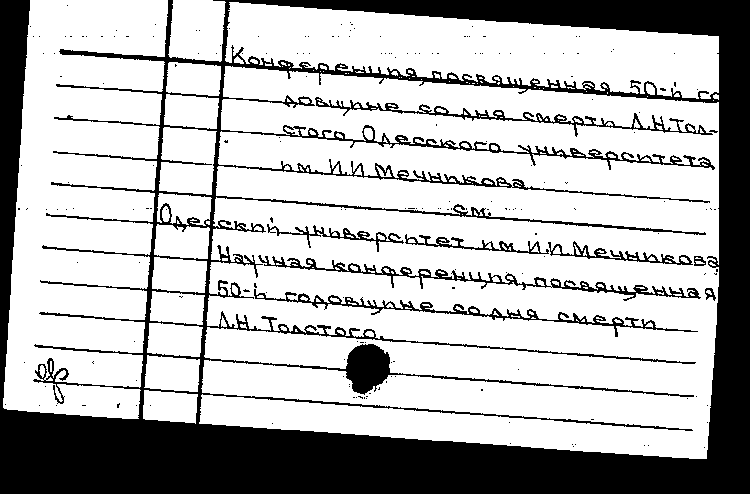 Конференция, посвященная 50-й го
довщине со дня смерти Л.Н.Тол-
стого, Одесского университета
им. И.И.Мечникова
см.
Одесский университет им И.И.Мечникова
Научная конференция, посвященная
50-й годовщине со дня смерти
Л.Н. Толстого.